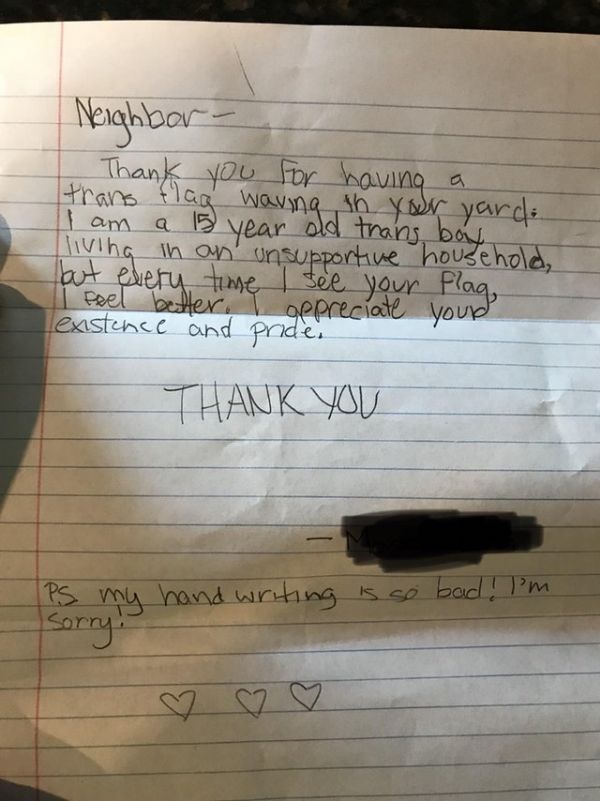 Neighbor-
Thank you for having a
trans flag waving in your yard.
I am a 15 year old trans boy
living in an unsupportive household,
but every time I see your flag,
I feel better. I appreciate your
existence and pride.
THANK YOU
-
P.S my hand writing is so bad! I'm
sorry!